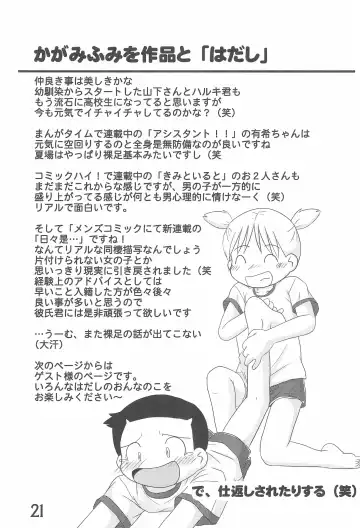 かがみふみを作品と「はだし」
仲良き事は美しきかな
幼馴染からスタートした山下さんとハルキ君も
もう流石に高校生になってると思いますが
今も元気でイチャイチャしてるのかな？（笑）
まんがタイムで連載中の「アシスタント！！」の有希ちゃんは
元気に空回りするのと全身是無防備なのが良いですね
夏場はやっぱり裸足基本みたいですし（笑）
コミックハイ！で連載中の「きみといると」のお２人さんも
まだまだこれからな感じですが、男の子が一方的に
盛り上がってる感じが何とも男心理的に情けなーく（笑）
リアルで面白いです。
そして「メンズコミックにて新連載の
「日々是…」ですね！
なんてリアルな同棲描写なんでしょう
片付けられない女の子とか
思いっきり現実に引き戻されました（笑
経験上のアドバイスとしては
早いこと入籍した方が色々後々
良い事が多いと思うので
彼氏君には是非頑張って欲しいです
…うーむ、また裸足の話が出てこない
（大汗）
次のページからは
ゲスト様のページです。
いろんなはだしのおんなのこを
お楽しみください～
で、仕返しされたりする（笑）
21